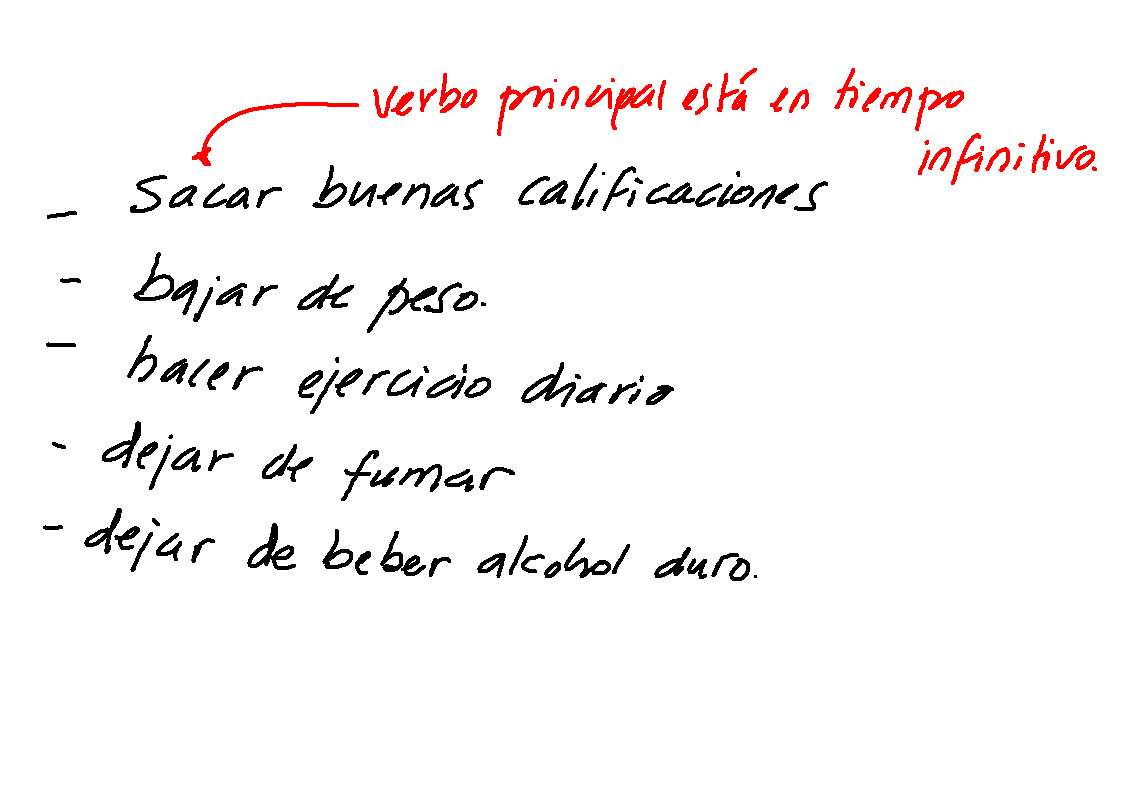 verbo principal está en tiempo
infinitivo.
- Sacar buenas calificaciones
- bajar de peso.
- hacer ejercicio diario
- dejar de fumar
- dejar de beber alcohol duro.